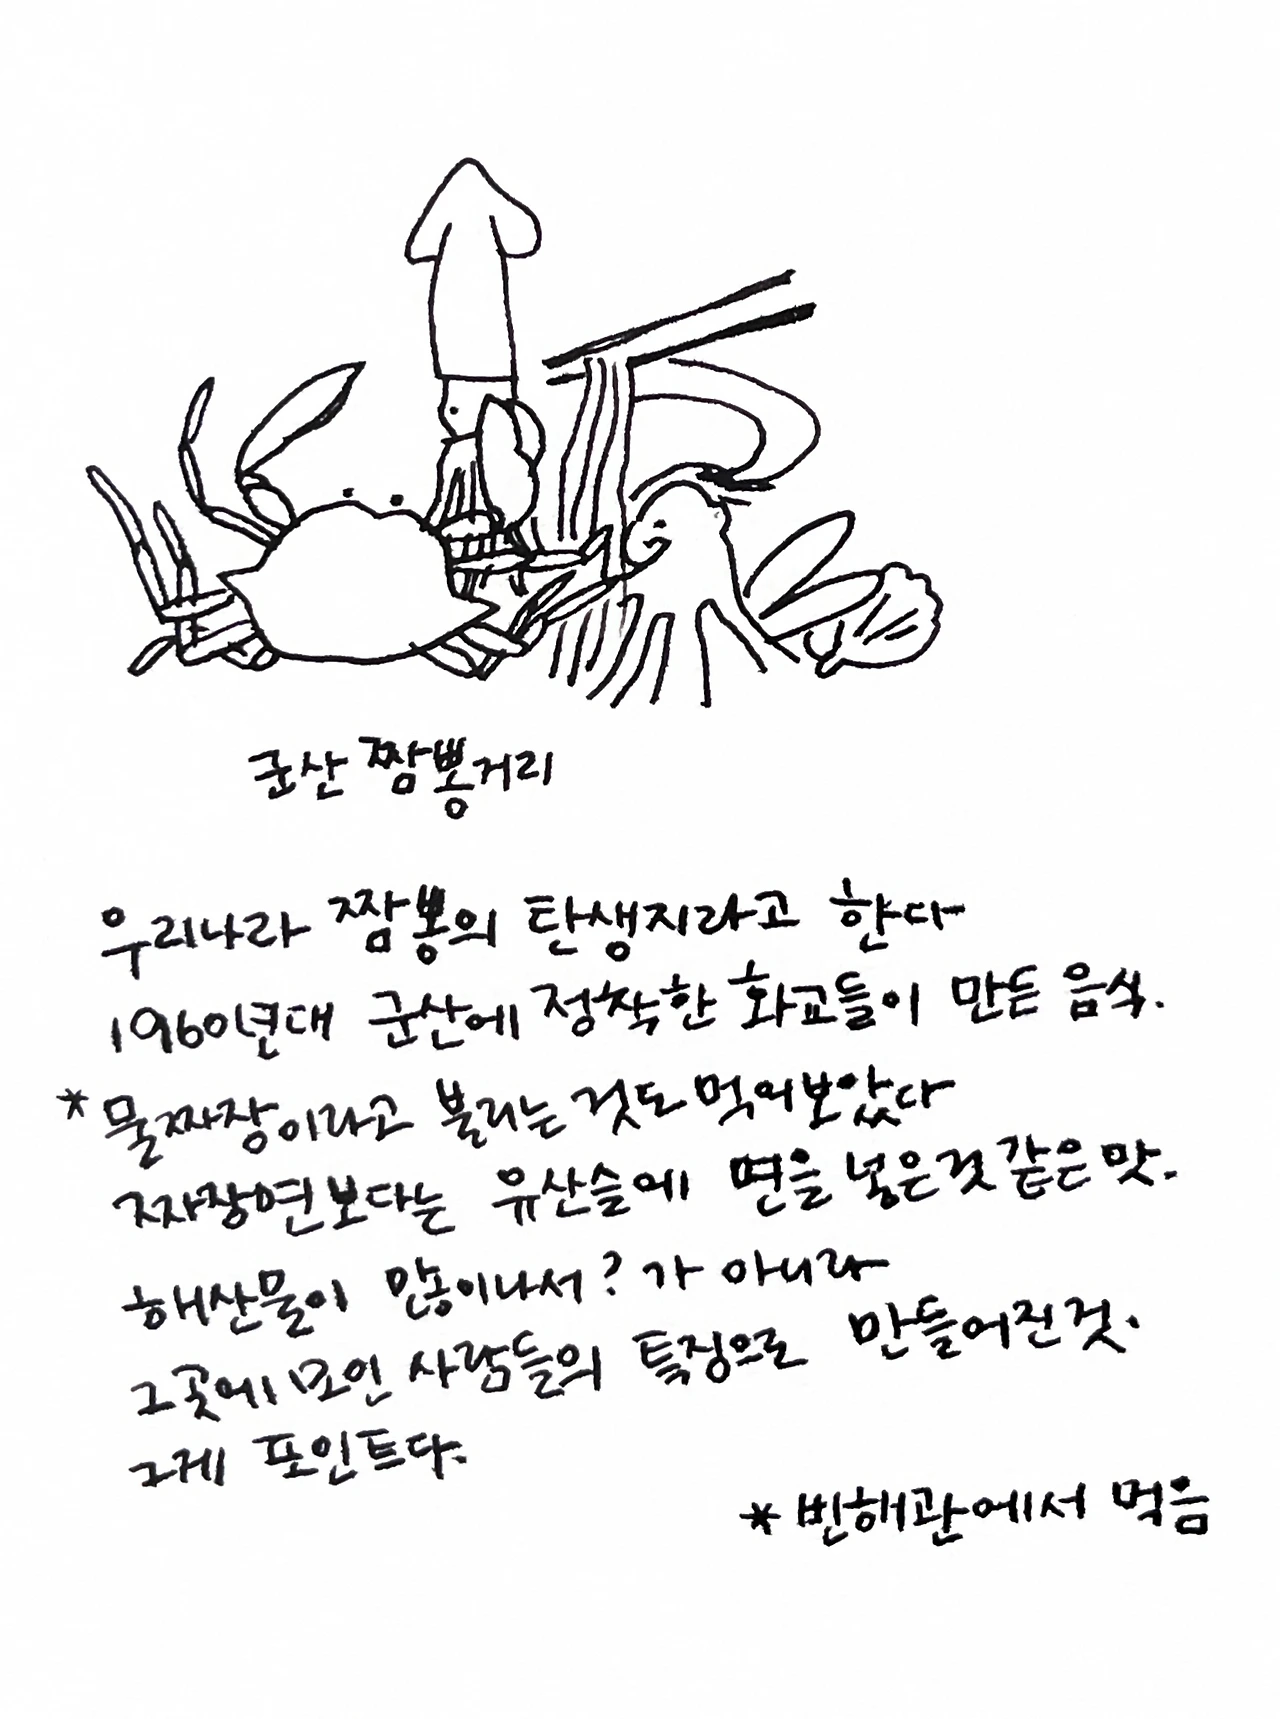 군산 짬뽕거리
우리나라 짬뽕의 탄생지라고 한다
1960년대 군산에 정착한 화교들이 만든 음식.
* 물짜장이라고 불리는 것도 먹어보았다
짜장면보다는 유산슬에 면을 넣은것 같은 맛.
해산물이 많이나서? 가 아니라
그곳에 모인 사람들의 특징으로 만들어진 것.
그게 포인트다.
* 빈해관에서 먹음